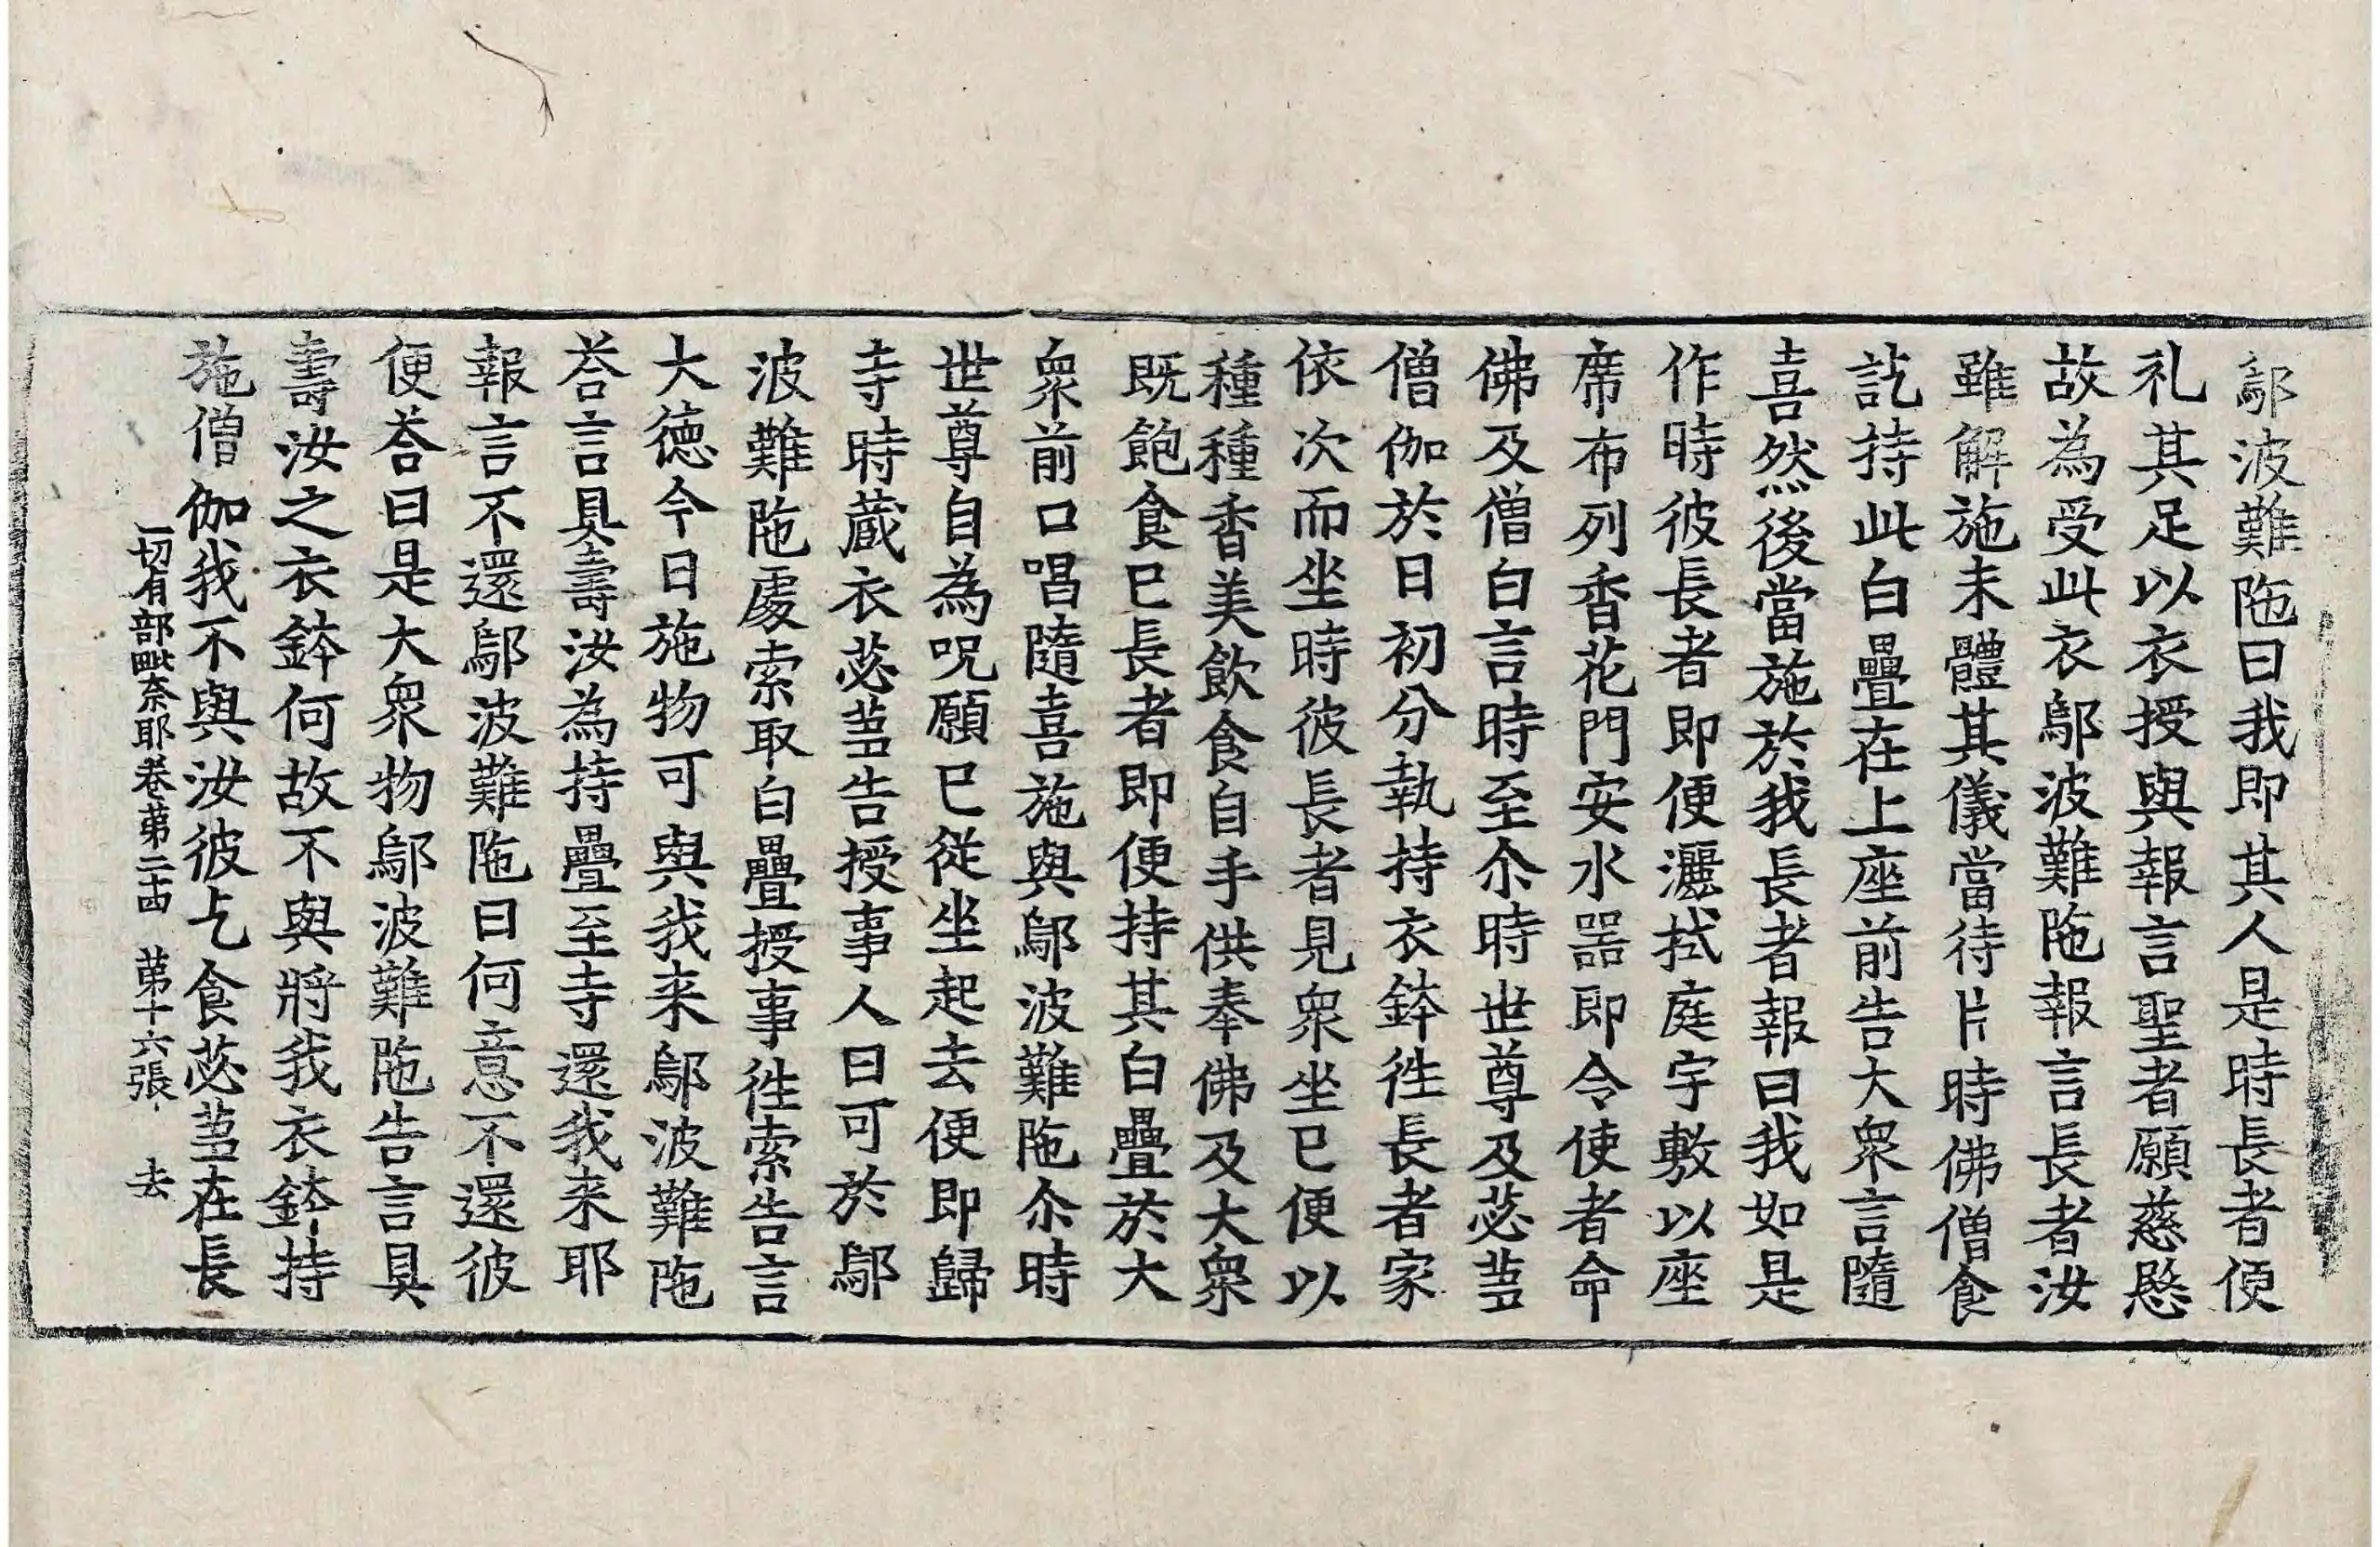 鄔波難陁曰我即其人是時長者便
礼其足以衣授與報言聖者願慈愍
故為受此衣鄔波難陁報言長者汝
雖解施未體其儀當待片時佛僧食
訖持此白疊在上座前告大衆言隨
喜然後當施於我長者報曰我如是
作時彼長者即便灑拭庭宇敷以座
席布列香花門安水器即令使者命
佛及僧白言時至尒時世尊及苾芻
僧伽於日初分執持衣鉢徃長者家
依次而坐時彼長者見衆坐已便以
種種香美飲食自手供奉佛及大衆
既飽食已長者即便持其白疊於大
衆前口唱隨喜施與鄔波難陁尒時
世尊自為呪願已從坐起去便即歸
寺時蔵衣苾芻告授事人曰可於鄔
波難陁處索取白疊授事徃索告言
大德今日施物可與我来鄔波難陁
荅言具壽汝為持疊至寺還我来耶
報言不還鄔波難陁曰何意不還彼
便荅曰是大衆物鄔波難陁告言具
壽汝之衣鉢何故不與將我衣鉢持
施僧伽我不與汝彼乞食苾芻在長
一切有部毗奈耶卷苐二十四　苐十六張　去